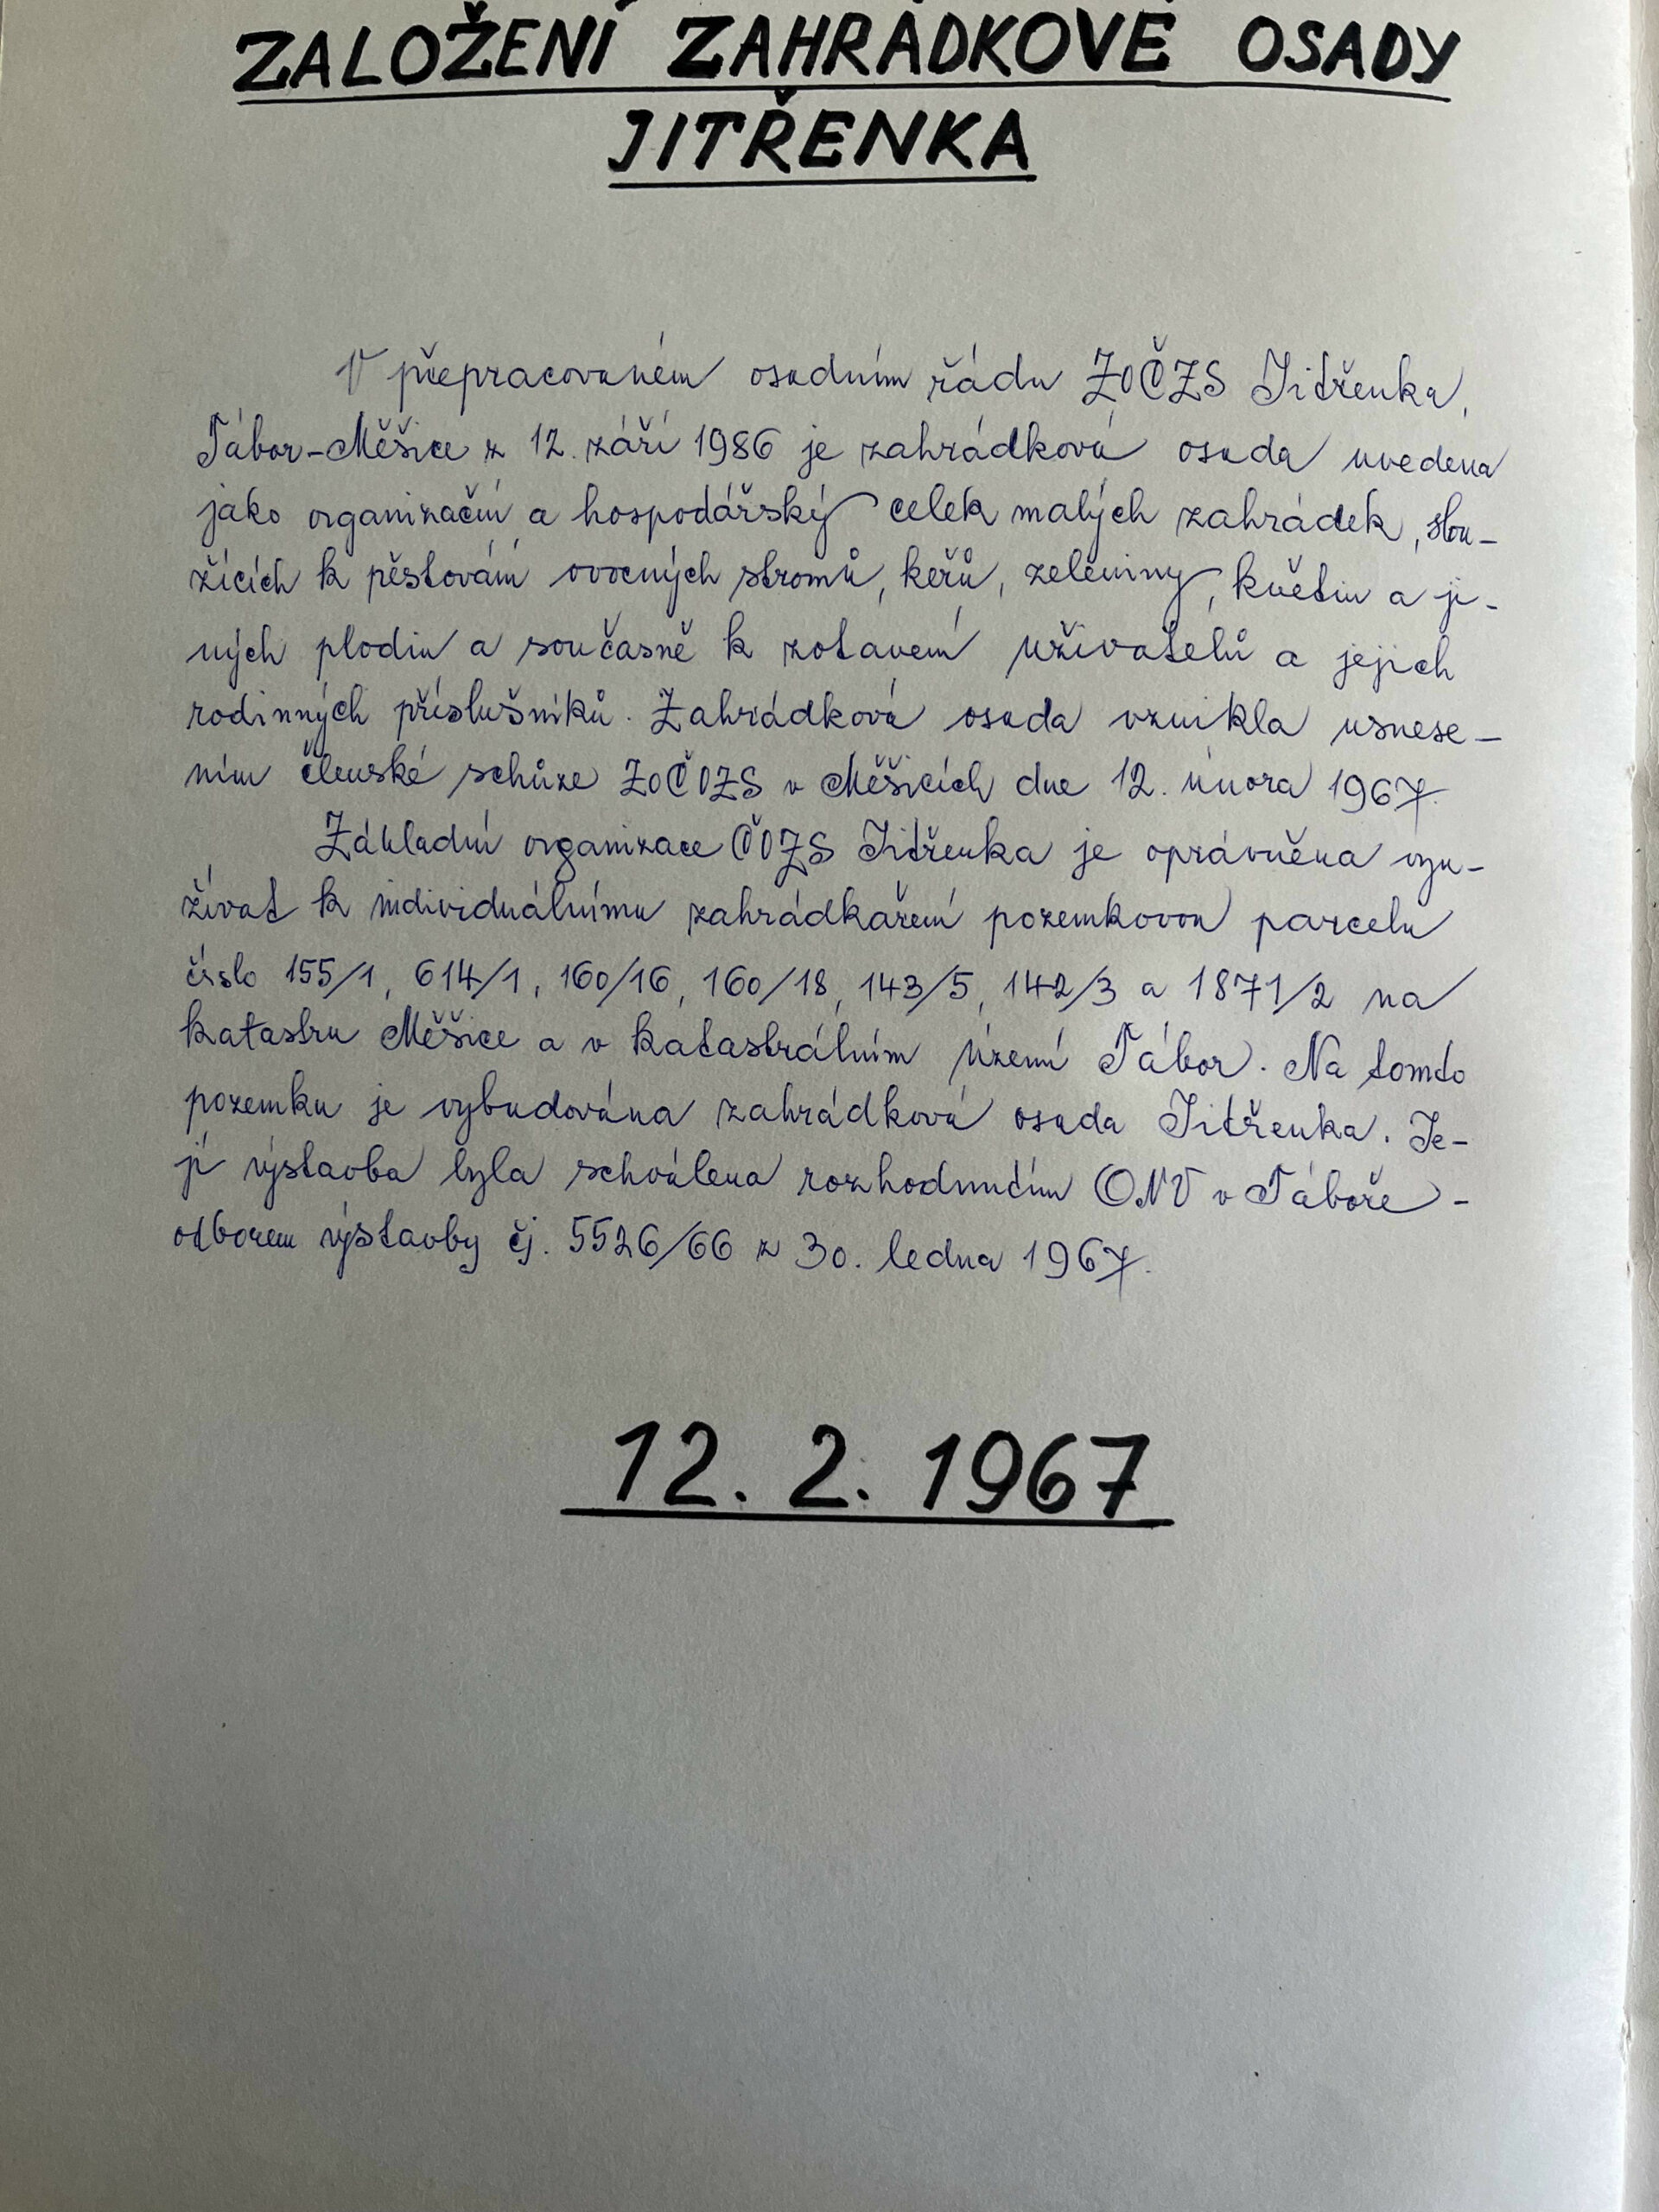 ZALOŽENÍ ZAHRÁDKOVÉ OSADY
JITŘENKA
V přepracovaném osadním řádu ZOČZS Jitřenka,
Tábor-Měšice z 12. září 1986 je zahrádková osada uvedena
jako organizační a hospodářský celek malých zahrádek, slou-
žících k pěstování ovocných stromů, keřů, zeleniny, květin a ji-
ných plodin a současně k zotavení uživatelů a jejich
rodinných příslušníků. Zahrádková osada vznikla usnese-
ním členské schůze ZOČOZS v Měšicích dne 12. února 1967.
Základní organizace ČOZS Jitřenka je oprávněna vyu-
žívat k individuálnímu zahrádkaření pozemkovou parcelu
číslo 155/1, 614/1, 160/16, 160/18, 143/5, 142/3 a 1871/2 na
katastru Měšice a v katastrálním území Tábor. Na tomto
pozemku je vybudována zahrádková osada Jitřenka. Je-
jí výstavba byla schválena rozhodnutím ONV v Táboře -
odborem výstavby čj. 5526/66 z 30. ledna 1967.
12. 2. 1967